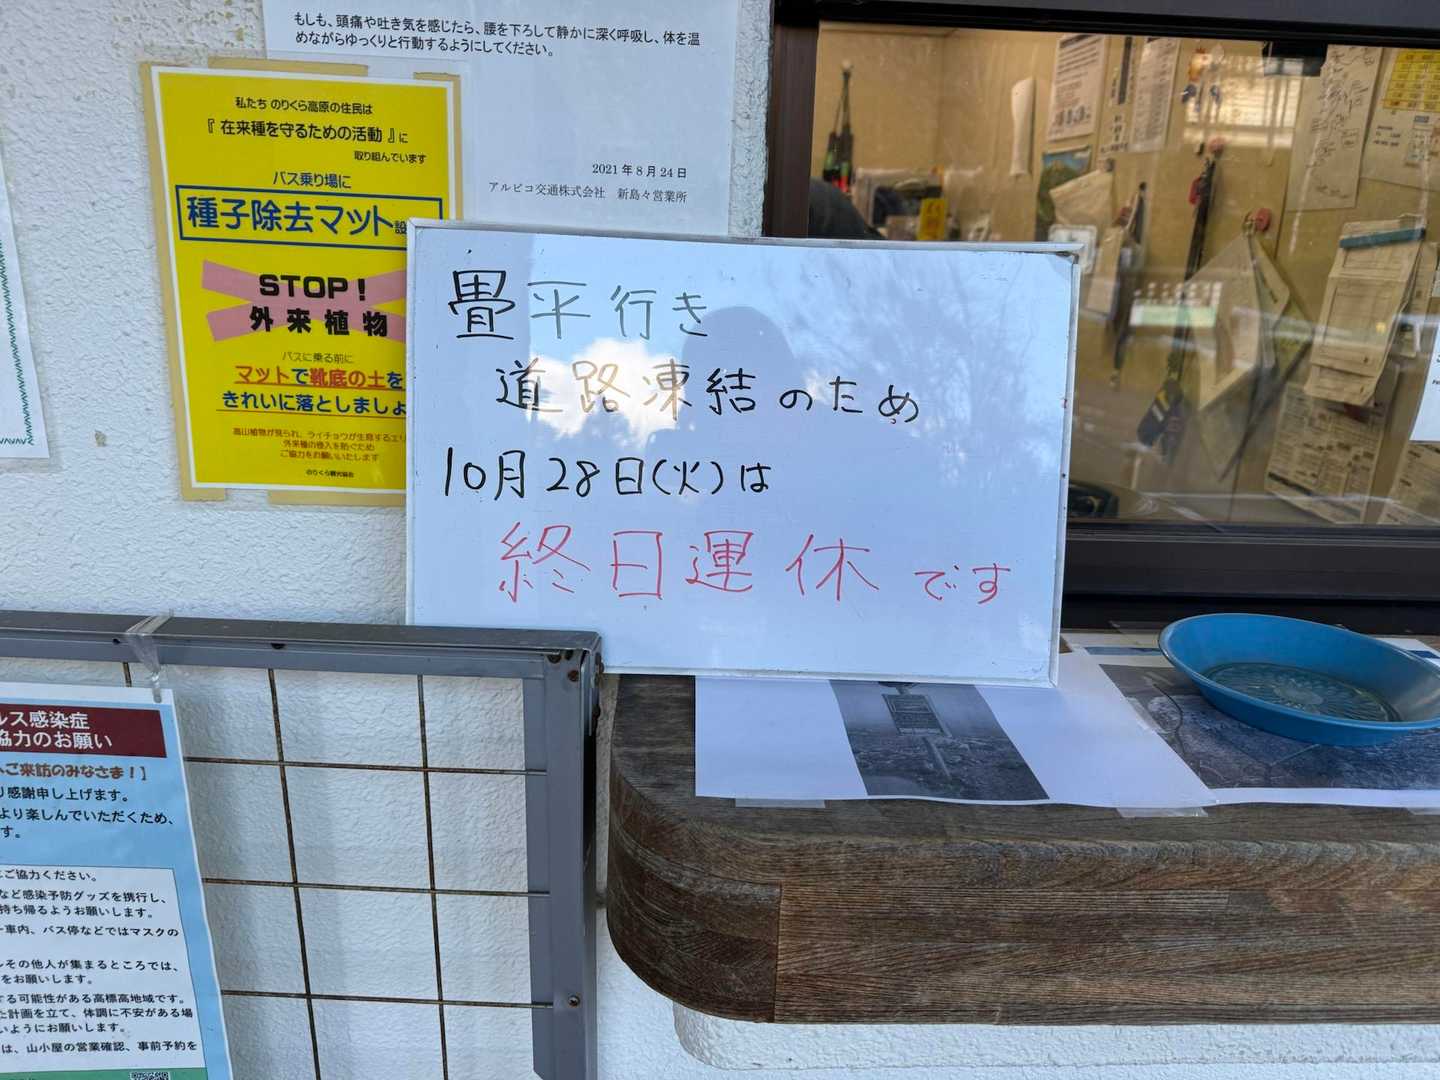 もしも、頭痛や吐き気を感じたら、腰を下ろして静かに深く呼吸し、体を温
めながらゆっくりと行動するようにしてください。
2021年8月24日
アルピコ交通株式会社　新島々営業所
私たち のりくら高原の住民は
『 在来種を守るための活動 』に
取り組んでいます
バス乗り場に
種子除去マット設
STOP！
外来植物
バスに乗る前に
マットで靴底の土を
きれいに落としましょ
高山植物が見られ、ライチョウが生息するエリ
外来種の侵入を防ぐため
ご協力をお願いいたします
のりくら観光協会
畳平行き
道路凍結のため
10月28日(火)は
終日運休です
ルス感染症
協力のお願い
ご来訪のみなさま！】
り感謝申し上げます。
より楽しんでいただくため、
す。
ご協力ください。
など感染予防グッズを携行し、
持ち帰るようお願いします。
車内、バス停などではマスクの
その他人が集まるところでは、
をお願いします。
する可能性がある高標高地域です。
た計画を立て、体調に不安がある場
いようにお願いします。
は、山小屋の営業確認、事前予約を